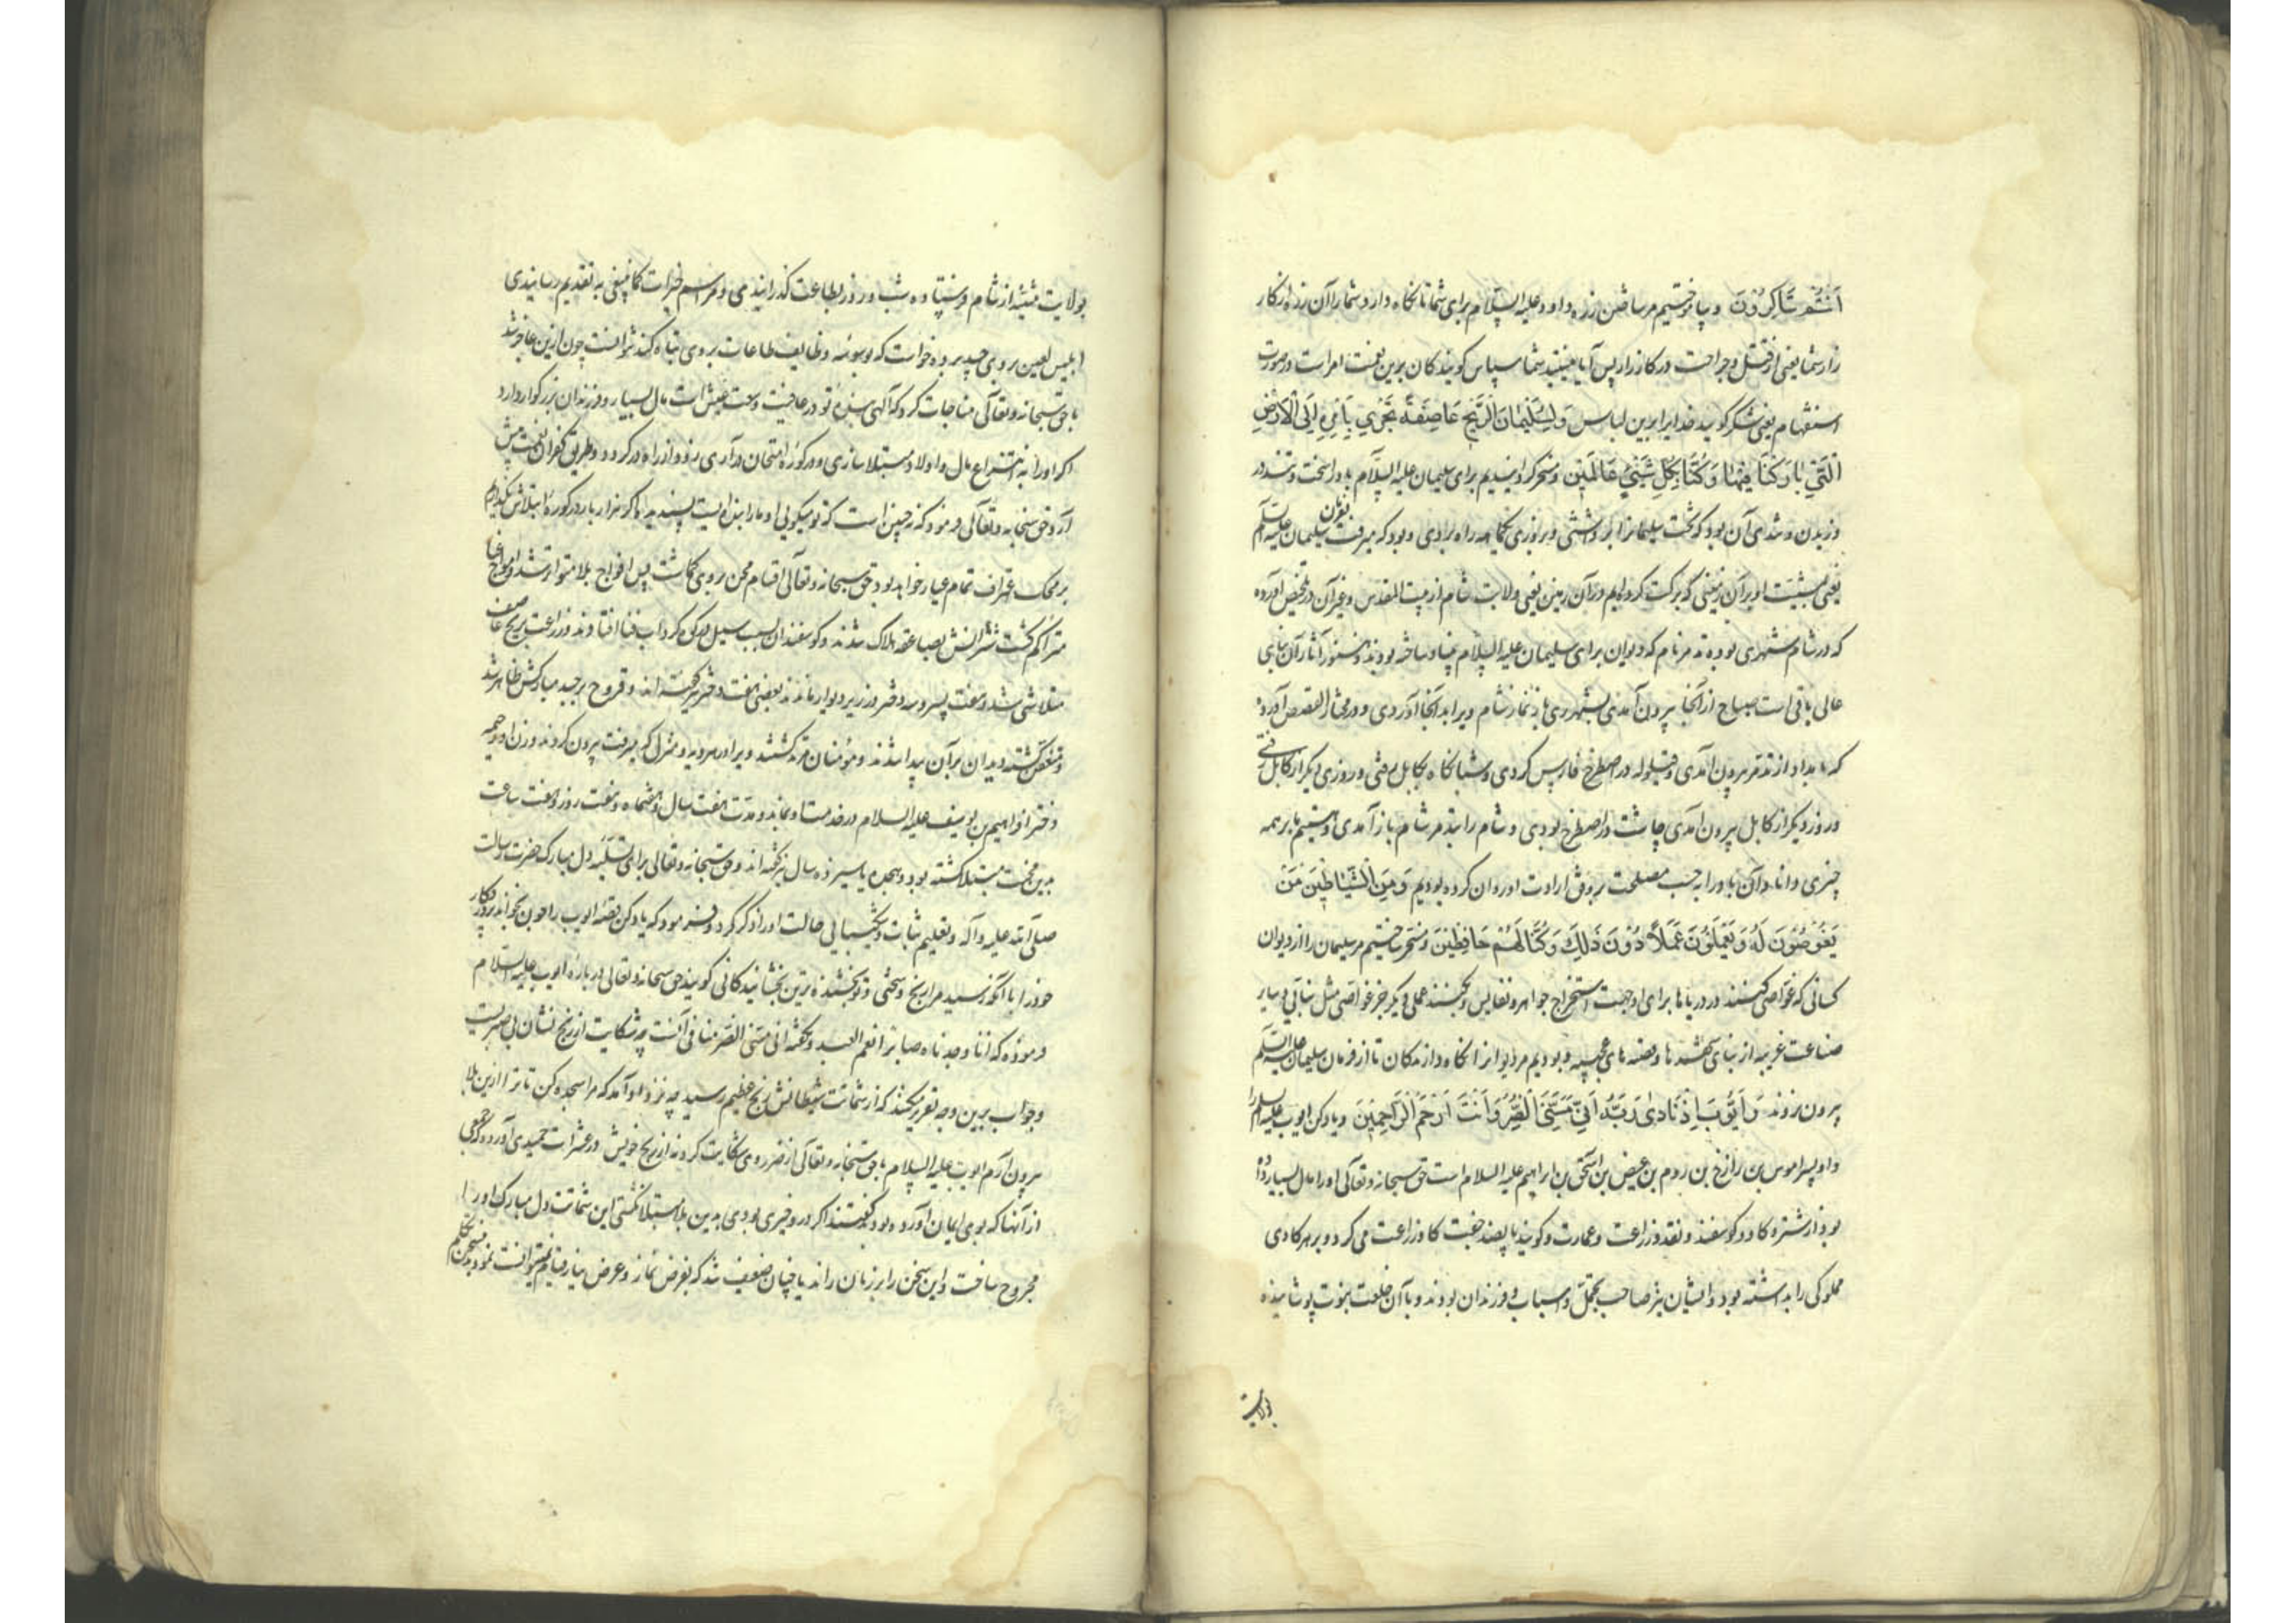 اَنْتُمْ شَاكِرُوْنَ و بیاموختیم مر ساختن زره داود علیه السلام برای شما تا نگاه دارد شما را آن زره از کار
زار شما یعنی از قتل و جراحت در کارزار پس آیا هستید شما سپاس گویندگان برین نعمت امر است در صورت
استفهام یعنی شکر گویید خدایرا برین لباس وَلِسُلَيْمَانَ الرِّيْحَ عَاصِفَةً تَجْرِيْ بِاَمْرِهٖ اِلَى الْاَرْضِ
الَّتِيْ بَارَكْنَا فِيْهَا وَكُنَّا بِكُلِّ شَيْءٍ عَالِمِيْنَ و مسخر گردانیدیم برای سلیمان علیه السلام باد را سخت و تند در
وزیدن و تندی آن بود که تخت سلیمانرا برداشتی و بروزی یکماهه راه برادی و بود که میرفت بفرمان سلیمان علیه السلام
یعنی بمشیت او بر آن زمینی که برکت کرده ایم در آن زمین یعنی ولایت شام از بیت المقدس و غیر آن در تلخیص آورده
که در شام شهری بوده تدمر نام که دیوان برای سلیمان علیه السلام بنیاد ساخته بودند و هنوز آثار آن بنای
عالی باقی است صباح از آنجا بیرون آمدی بشهر ری باز نماز شام ویرا بدانجا آوردی و در مختار القصص آورده
که بامداد از تدمر بیرون آمدی و قیلوله در اصطرخ فارس کردی و شبانگاه بکابل رفتی و روزی دیگر از کابل رفتی
و روز دیگر از کابل بیرون آمدی چاشت در اصطرخ بودی و شام را بتدمر شام باز آمدی و هستیم ما بر همه
چیزی دانا و آن باد را به حسب مصلحت بر وفق ارادت او روان کرده بودیم وَمِنَ الشَّيَاطِيْنَ مَنْ
يَغُوْصُوْنَ لَهٗ وَيَعْمَلُوْنَ عَمَلًا دُوْنَ ذَلِكَ وَكُنَّا لَهُمْ حَافِظِيْنَ و مسخر ساختیم مر سلیمان را از دیوان
کسانی که غواصی کنند در دریاها برای او جهت استخراج جواهر و نفایس و بکنند عملی دیگر جز غواصی مثل بنائی و سایر
صناعت غریبه از بنای شهرها و قصه های عجیبه و بودیم مر دیوانرا نگاه دارندگان تا از فرمان سلیمان علیه السلام
بیرون نروند وَاَيُّوْبَ اِذْ نَادٰى رَبَّهٗ اَنِّيْ مَسَّنِيَ الضُّرُّ وَاَنْتَ اَرْحَمُ الرَّاحِمِيْنَ و یاد کن ایوب علیه السلام را
و او پسر اموس بن رازخ بن روم بن عیص بن اسحق بن ابراهیم علیه السلام است حق سبحانه و تعالی او را مال بسیار داده
بود از شتر و گاو و گوسفند و نقد و زراعت و عمارت و گویند با پانصد جفت گاو زراعت می کرد و بر هر گاوی
مملوکی را بداشته بود و ایشان نیز صاحب تجمل و اسباب و فرزندان بودند و با آن خلعت نبوت پوشانیده
بولایت
بولایت مثنیه از شام فرستاده شب و روز بطاعت گذرانیدی و مراسم خیرات کما ینبغی به تقدیم رسانیدی
ابلیس لعین بر وی حسد برده خواست که بوسوسه وظایف طاعات بر وی تباه کند نتوانست چون ازین عاجز شد
با حق سبحانه و تعالی مناجات کرد که الهی بنده تو در عافیت و سعت عیش است مال بسیار و فرزندان بزرگوار دارد
اگر او را به انتزاع مال و اولاد مبتلا سازی و در کوره امتحان درآری زود از راه درگردد و طریق کفران نعمت پیش
آرد حق سبحانه و تعالی فرمود که نه چنین است که تو میگوئی او ما را بنده ایست پسندیده اگر هزار بار در کوره ابتلاش بگدازم
بر محک تمام عیار خواهد بود حق سبحانه و تعالی اقسام محن بر وی گماشت پس افواج بلا متواتر شد و امواج
متراکم گشت شترانش بصاعقه هلاک شدند و گوسفندان بسبب سیل در گرداب فنا افتادند و زراعت بریح عاصف
متلاشی شد و هفت پسر و سه دختر در زیر دیوار ماندند بعضی هفت دختر گفته اند و قروح بر جسد مبارکش ظاهر شد
و متعفن گشته دیدان بر آن پیدا شدند و مؤمنان مرتد گشتند و برادر هر ده و منزل که میرفت بیرون کردند و زن او رحمه
دختر افراهیم بن یوسف علیه السلام در خدمت او بماند و مدت هفت سال و هفتماه و هفت روز و هفت ساعت
بدین محنت مبتلا گشته بود و هجده یا سیزده سال نیز گفته اند و حق سبحانه و تعالی برای تسلیه دل مبارک حضرت رسالت
صلی الله علیه و آله و تعلیم ثبات و شکیبائی حالت او را ذکر کرد و فرمود که یاد کن قصه ایوب را چون بخواند پروردگار
خود را با آنکه رسید مرا رنج و سختی و تو بخشنده ترین بخشایندگانی گویند حق سبحانه و تعالی درباره ایوب علیه السلام
فرموده که انا وجدناه صابرا نعم العبد و گفته انی مسنی الضر منافی آنست چه شکایت از رنج نشان بی صبریست
و جواب برین وجه تقریر میکنند که از شماتت شیطانش رنج عظیم رسید چه نزد او آمد که مرا سجده کن تا ترا ازین بلا
بیرون آرم ایوب علیه السلام با حق سبحانه و تعالی از ضرر وی شکایت کرد نه از رنج خویش در عشرات حمیدی آورده که جمعی
از آنها که بوی ایمان آورده بودند گفتند اگر در و خیری بودی بدین بلا مبتلا نگشتی این شماتت دل مبارک او را
مجروح ساخت و این سخن را بر زبان راند یا چنان ضعیف شد که بفرض نماز و عرض نیاز قیام نمیتوانست نمود